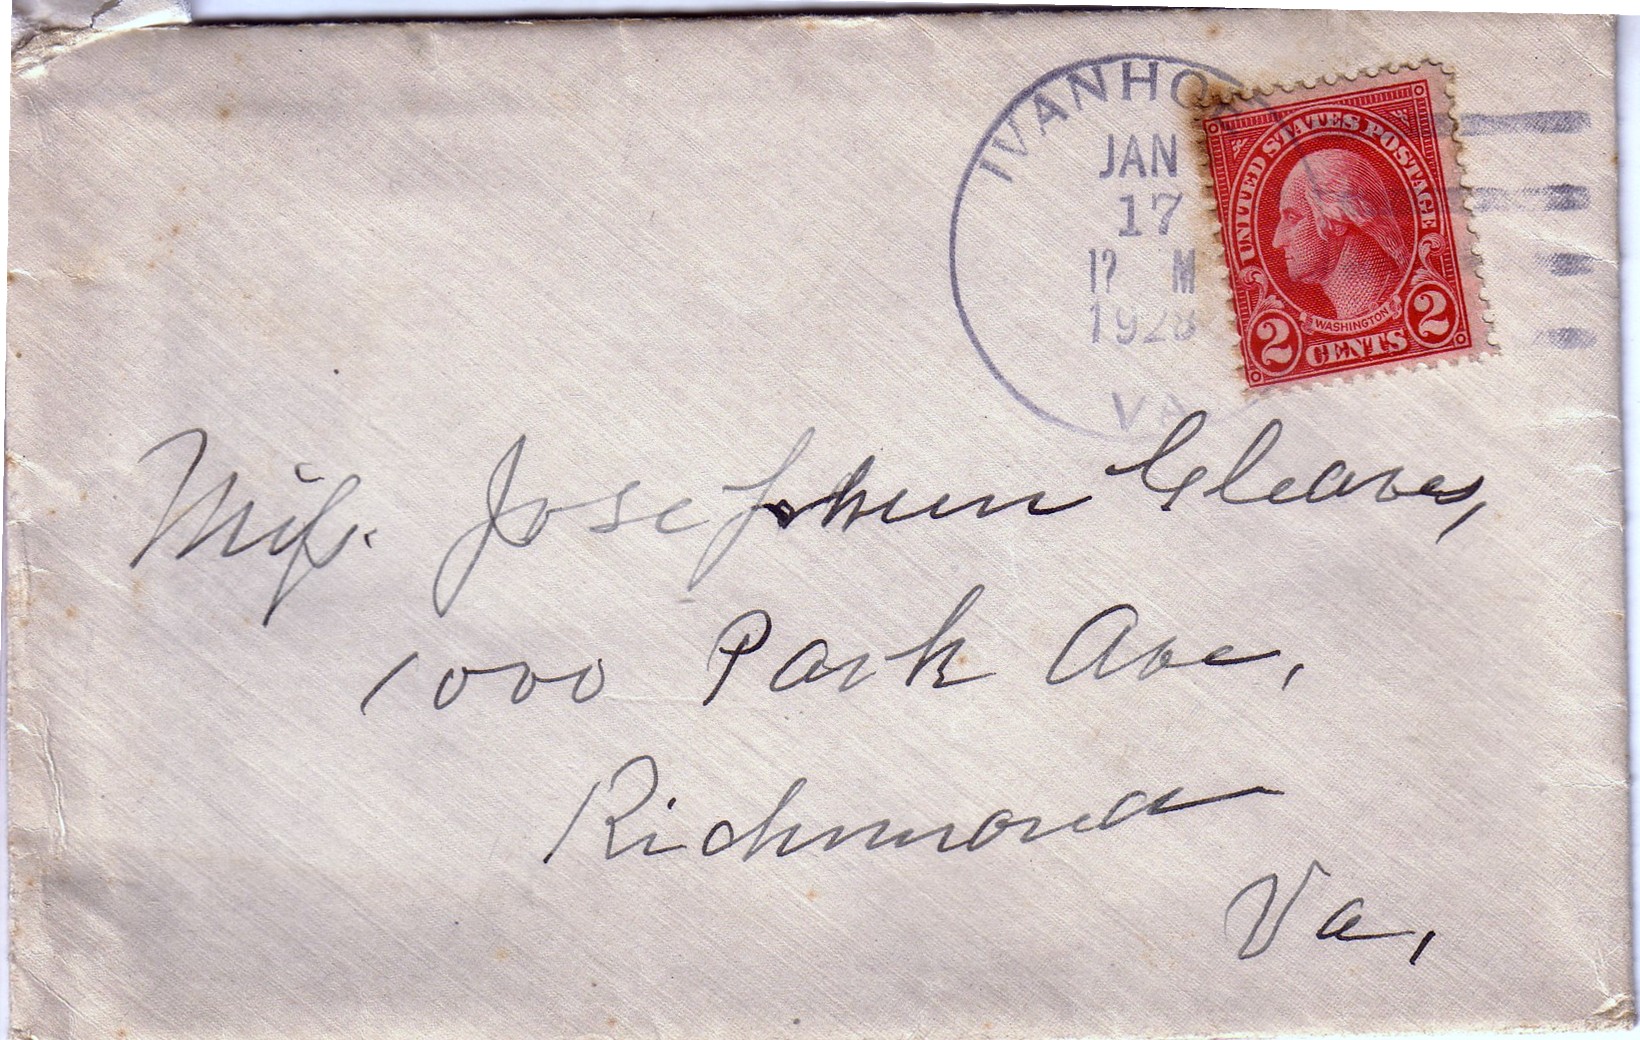 IVANHOE
JAN
17
M
1928
VA
UNITED STATES POSTAGE
WASHINGTON
2 CENTS 2
Miss. Josephine Cleaves,
1000 Park Ave,
Richmond
Va,